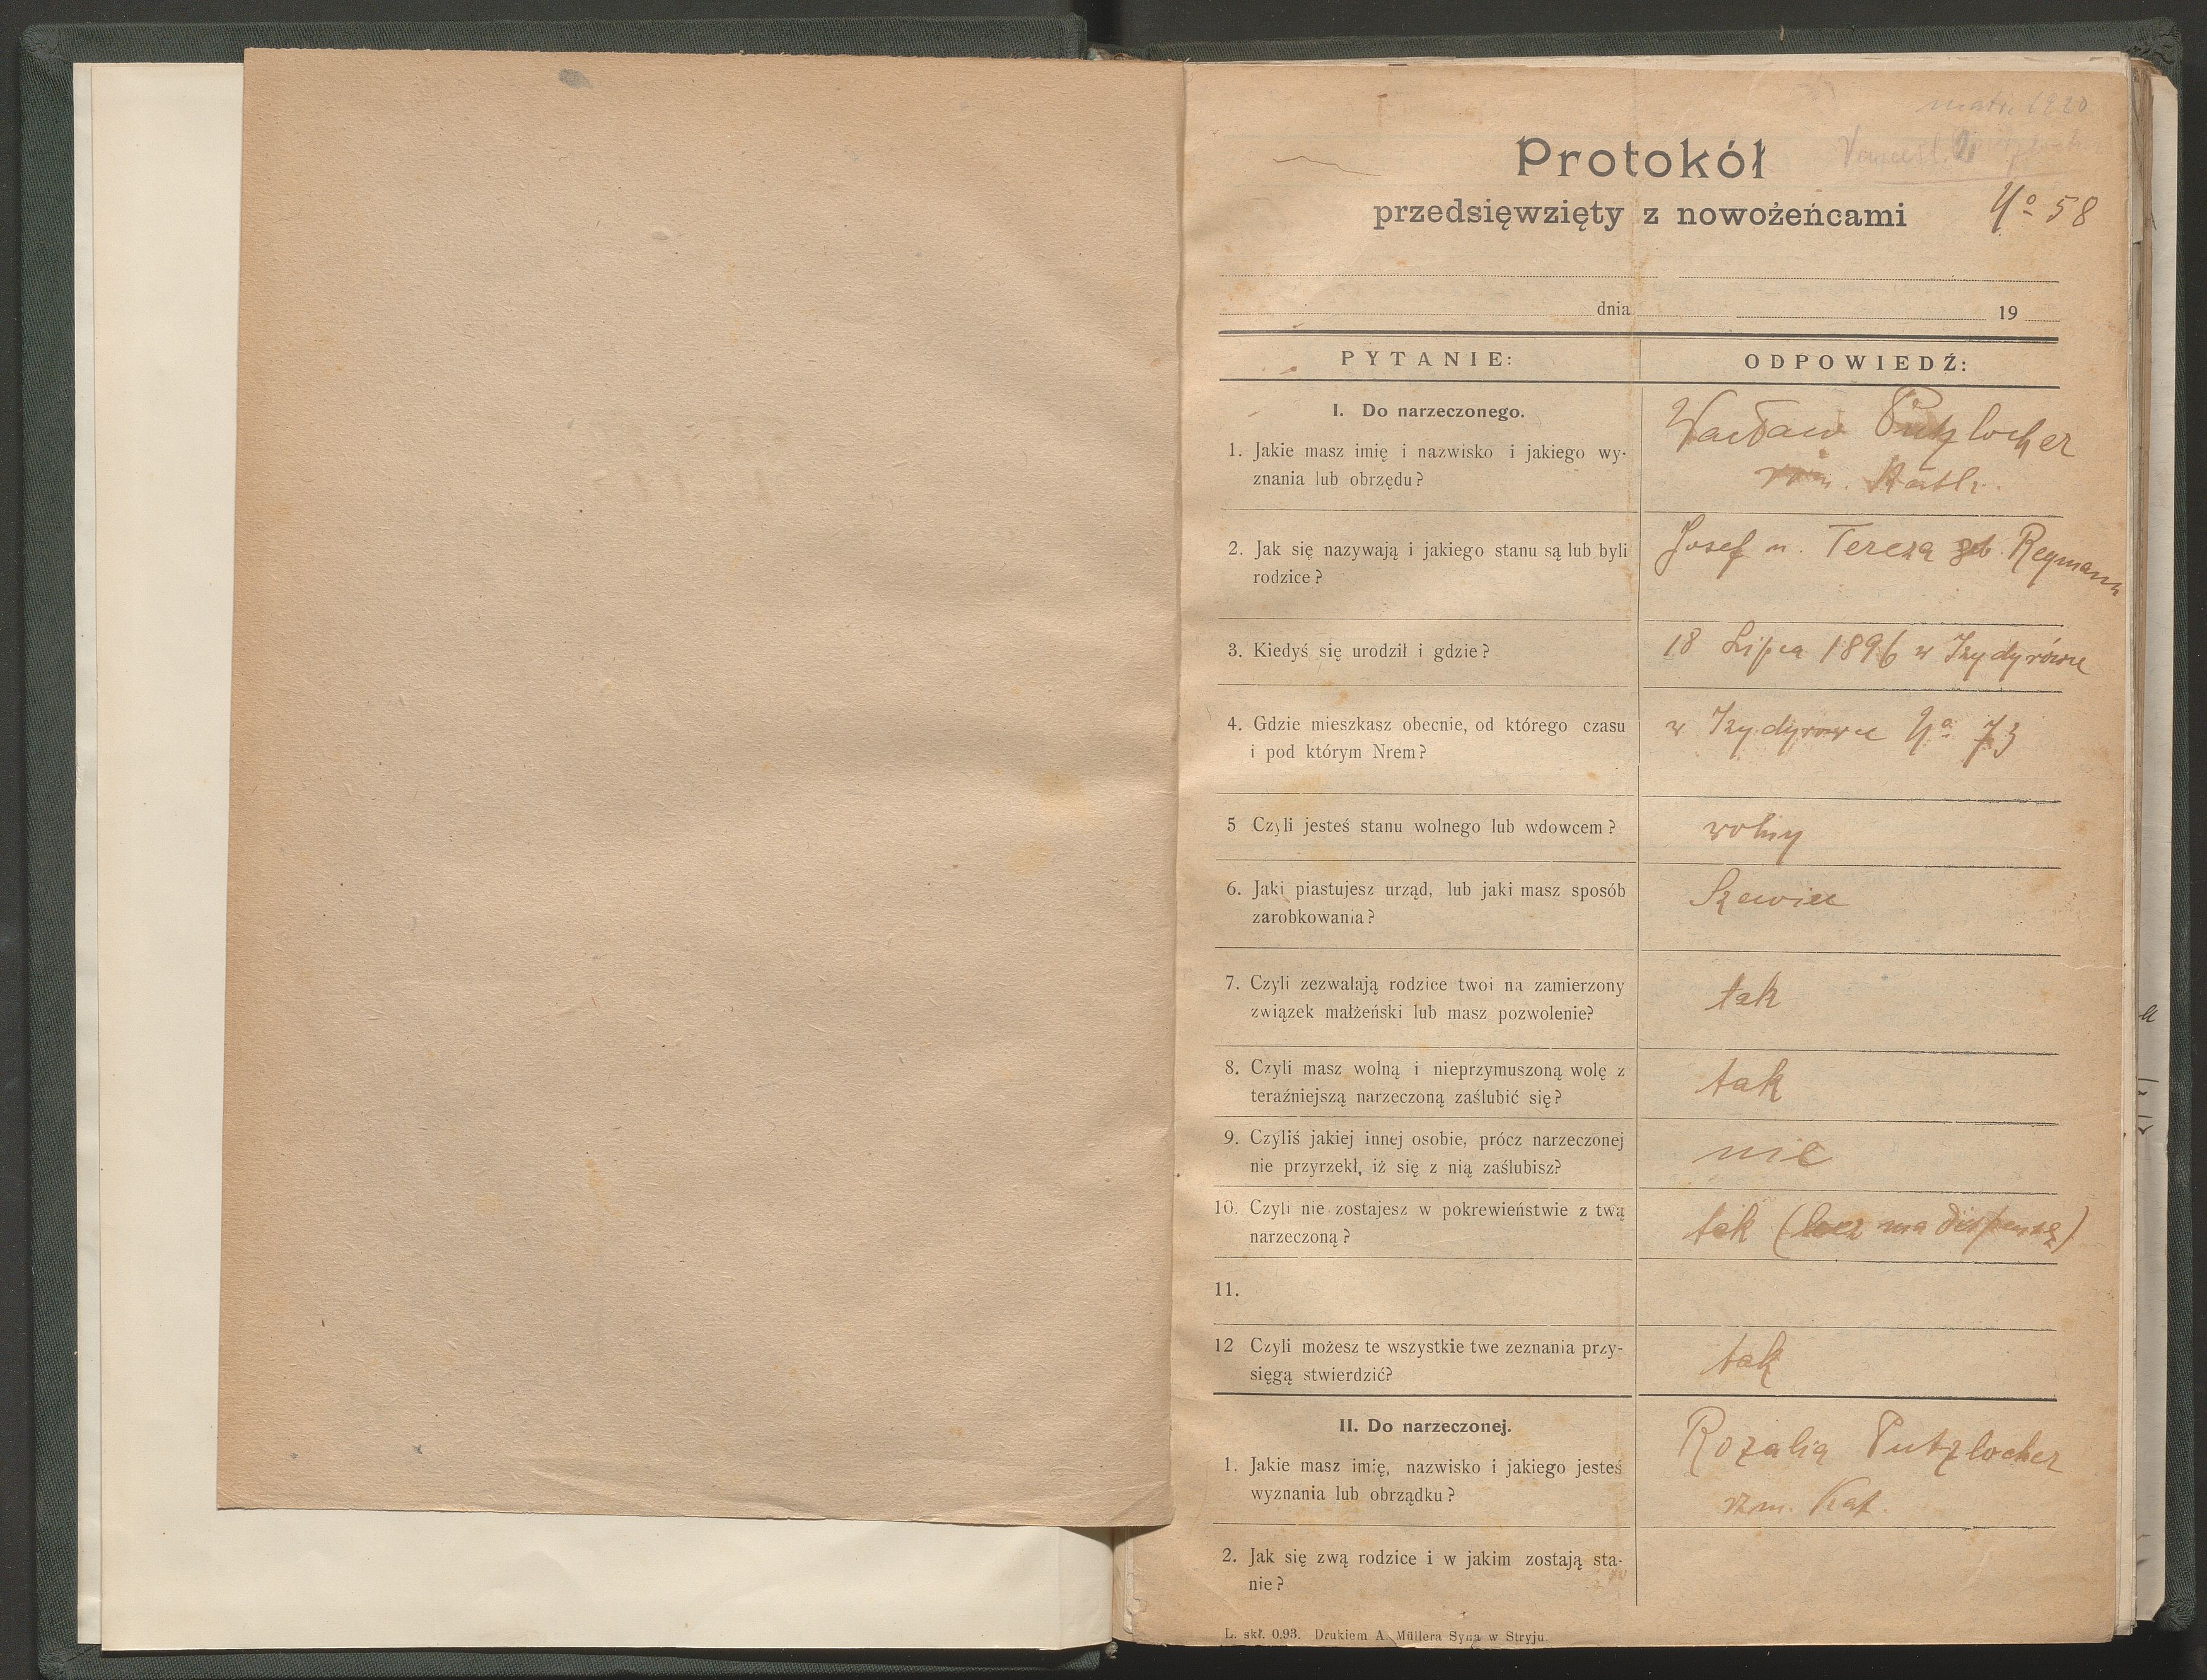 matr. 1920
Protokół
przedsięwzięty z nowożeńcami
No 58
dnia 19
PYTANIE: ODPOWIEDŹ:
I. Do narzeczonego.
1. Jakie masz imię i nazwisko i jakiego wy-
znania lub obrzędu?
Wacław Putzlocher
rzm. Kath.
2. Jak się nazywają i jakiego stanu są lub byli
rodzice?
Josef u. Tereza geb. Reymann
3. Kiedyś się urodził i gdzie?
18 Lipca 1896 w Izydyrówce
4. Gdzie mieszkasz obecnie, od którego czasu
i pod którym Nrem?
w Izydyrowce No 73
5 Czyli jesteś stanu wolnego lub wdowcem?
wolny
6. Jaki piastujesz urząd, lub jaki masz sposób
zarobkowania?
Szewiec
7. Czyli zezwalają rodzice twoi na zamierzony
związek małżeński lub masz pozwolenie?
tak
8. Czyli masz wolną i nieprzymuszoną wolę z
teraźniejszą narzeczoną zaślubić się?
tak
9. Czyliś jakiej innej osobie, prócz narzeczonej
nie przyrzekł, iż się z nią zaślubisz?
nie
10. Czyli nie zostajesz w pokrewieństwie z twą
narzeczoną?
tak (lecz ma dispensę)
11.
12 Czyli możesz te wszystkie twe zeznania przy-
sięgą stwierdzić?
tak
II. Do narzeczonej.
1. Jakie masz imię, nazwisko i jakiego jesteś
wyznania lub obrządku?
Rozalia Putzlocher
rzm. Kat.
2. Jak się zwą rodzice i w jakim zostają sta-
nie?
L. skł. 0.93. Drukiem A. Müllera Syna w Stryju